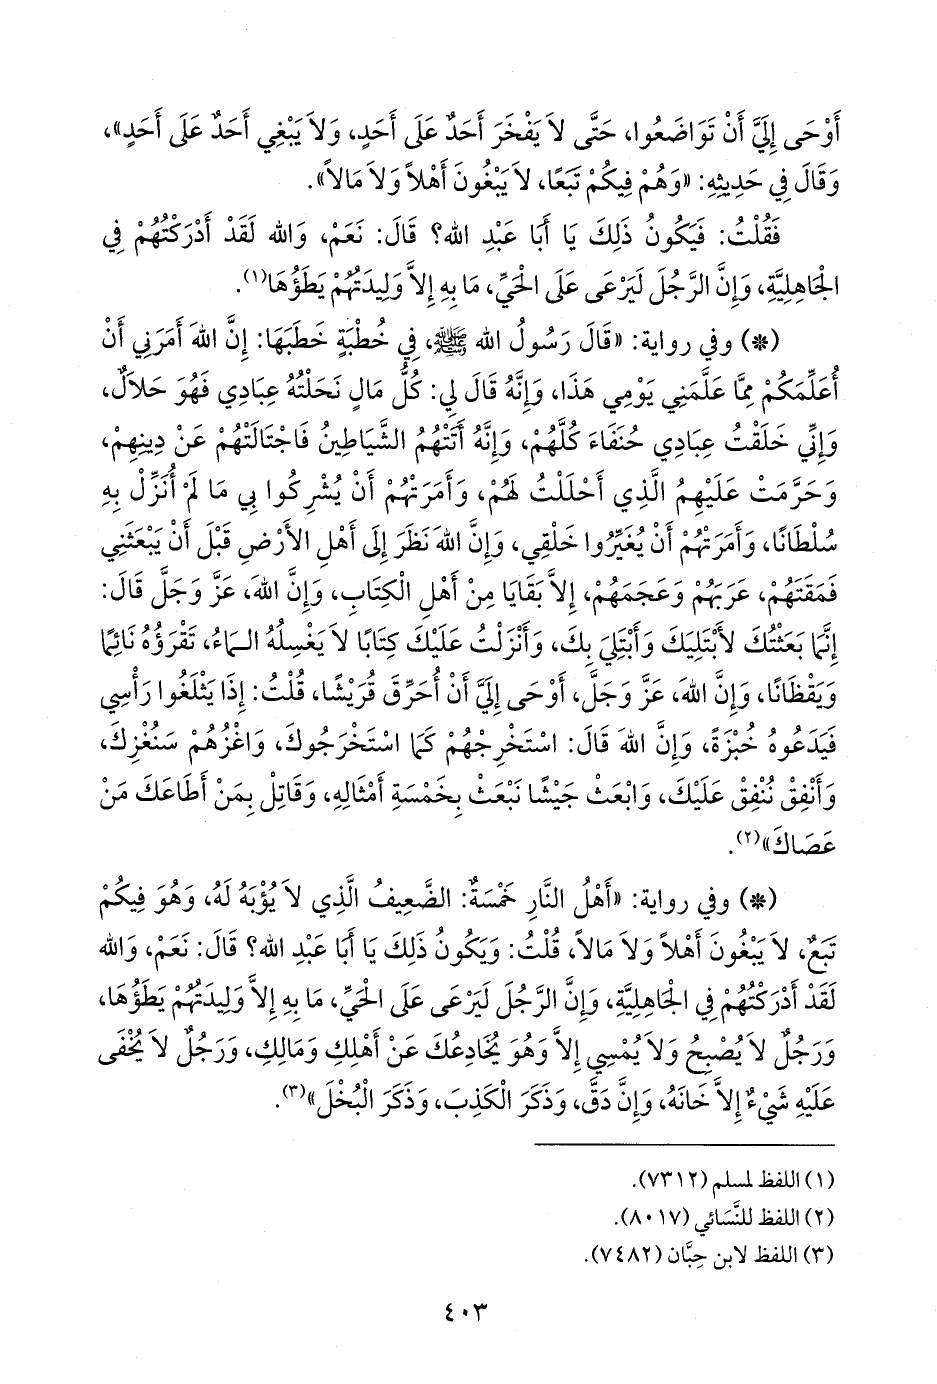 أَوْحَى إِلَيَّ أَنْ تَوَاضَعُوا، حَتَّى لاَ يَفْخَرَ أَحَدٌ عَلَى أَحَدٍ، وَلاَ يَبْغِي أَحَدٌ عَلَى أَحَدٍ»،
وَقَالَ فِي حَدِيثِهِ: «وَهُمْ فِيكُمْ تَبَعًا، لاَ يَبْغُونَ أَهْلاً وَلاَ مَالاً».
فَقُلْتُ: فَيَكُونُ ذَلِكَ يَا أَبَا عَبْدِ الله؟ قَالَ: نَعَمْ، وَالله لَقَدْ أَدْرَكْتُهُمْ فِي
الْجَاهِلِيَّةِ، وَإِنَّ الرَّجُلَ لَيَرْعَى عَلَى الْحَيِّ، مَا بِهِ إِلاَّ وَلِيدَتُهُمْ يَطَؤُهَا(١).
(*) وفي رواية: «قَالَ رَسُولُ الله ﷺ، فِي خُطْبَةٍ خَطَبَهَا: إِنَّ اللهَ أَمَرَنِي أَنْ
أُعَلِّمَكُمْ مِمَّا عَلَّمَنِي يَوْمِي هَذَا، وَإِنَّهُ قَالَ لِي: كُلُّ مَالٍ نَحَلْتُهُ عِبَادِي فَهُوَ حَلاَلٌ،
وَإِنِّي خَلَقْتُ عِبَادِي حُنَفَاءَ كُلَّهُمْ، وَإِنَّهُ أَتَتْهُمُ الشَّيَاطِينُ فَاجْتَالَتْهُمْ عَنْ دِينِهِمْ،
وَحَرَّمَتْ عَلَيْهِمُ الَّذِي أَحْلَلْتُ لَهُمْ، وَأَمَرَتْهُمْ أَنْ يُشْرِكُوا بِي مَا لَمْ أُنَزِّلْ بِهِ
سُلْطَانًا، وَأَمَرَتْهُمْ أَنْ يُغَيِّرُوا خَلْقِي، وَإِنَّ اللهَ نَظَرَ إِلَى أَهْلِ الأَرْضِ قَبْلَ أَنْ يَبْعَثَنِي
فَمَقَتَهُمْ، عَرَبَهُمْ وَعَجَمَهُمْ، إِلاَّ بَقَايَا مِنْ أَهْلِ الْكِتَابِ، وَإِنَّ اللهَ، عَزَّ وَجَلَّ قَالَ:
إِنَّمَا بَعَثْتُكَ لأَبْتَلِيَكَ وَأَبْتَلِيَ بِكَ، وَأَنْزَلْتُ عَلَيْكَ كِتَابًا لاَ يَغْسِلُهُ الـمَاءُ، تَقْرَؤُهُ نَائِمًا
وَيَقْظَانًا، وَإِنَّ اللهَ، عَزَّ وَجَلَّ، أَوْحَى إِلَيَّ أَنْ أُحَرِّقَ قُرَيْشًا، قُلْتُ: إِذًا يَثْلَغُوا رَأْسِي
فَيَدَعُوهُ خُبْزَةً، وَإِنَّ اللهَ قَالَ: اسْتَخْرِجْهُمْ كَمَا اسْتَخْرَجُوكَ، وَاغْزُهُمْ سَنُغْزِكَ،
وَأَنْفِقْ نُنْفِقْ عَلَيْكَ، وَابْعَثْ جَيْشًا نَبْعَثْ بِخَمْسَةِ أَمْثَالِهِ، وَقَاتِلْ بِمَنْ أَطَاعَكَ مَنْ
عَصَاكَ»(٢).
(*) وفي رواية: «أَهْلُ النَّارِ خَمْسَةٌ: الضَّعِيفُ الَّذِي لاَ يُؤْبَهُ لَهُ، وَهُوَ فِيكُمْ
تَبَعٌ، لاَ يَبْغُونَ أَهْلاً وَلاَ مَالاً، قُلْتُ: وَيَكُونُ ذَلِكَ يَا أَبَا عَبْدِ الله؟ قَالَ: نَعَمْ، وَالله
لَقَدْ أَدْرَكْتُهُمْ فِي الْجَاهِلِيَّةِ، وَإِنَّ الرَّجُلَ لَيَرْعَى عَلَى الْحَيِّ، مَا بِهِ إِلاَّ وَلِيدَتُهُمْ يَطَؤُهَا،
وَرَجُلٌ لاَ يُصْبِحُ وَلاَ يُمْسِي إِلاَّ وَهُوَ يُخَادِعُكَ عَنْ أَهْلِكَ وَمَالِكَ، وَرَجُلٌ لاَ يُخْفَى
عَلَيْهِ شَيْءٌ إِلاَّ خَانَهُ، وَإِنَّ دَقَّ، وَذَكَرَ الْكَذِبَ، وَذَكَرَ الْبُخْلَ»(٣).
(١) اللفظ لمسلم (٧٣١٢).
(٢) اللفظ للنَّسَائي (٨٠١٧).
(٣) اللفظ لابن حِبَّان (٧٤٨٢).
٤٠٣